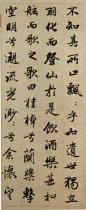 不知其所止飄〻乎如遺世獨立
羽化而登仙於是飲酒樂甚扣
舷而歌之歌曰桂棹兮蘭槳擊
空明兮泝流光渺〻兮余懷望